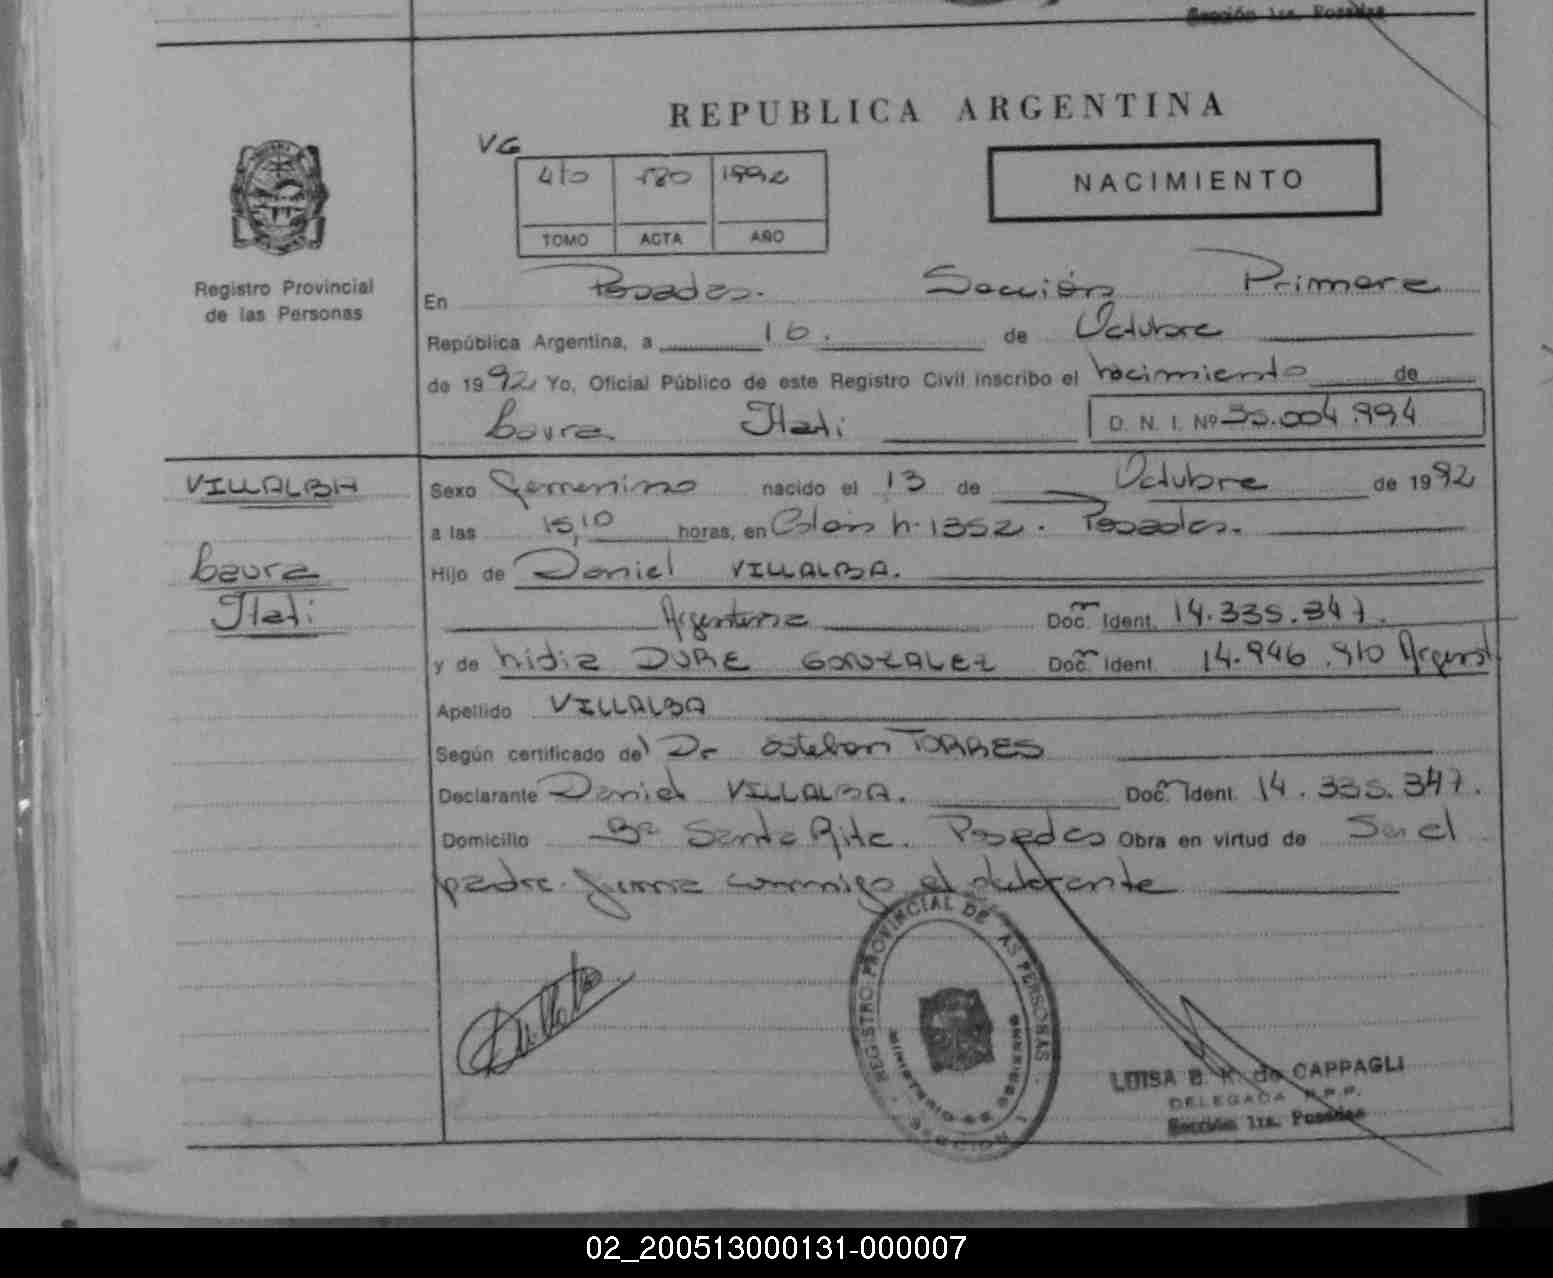 Sección 1ra. Posadas
REPUBLICA ARGENTINA
VG
NACIMIENTO
410 180 1992
TOMO ACTA AÑO
Registro Provincial
de las Personas
En Posadas. Sección Primera
República Argentina, a 16. de Octubre
de 1992 Yo, Oficial Público de este Registro Civil inscribo el nacimiento de
Laura Itati D. N. I. Nº 35.004.994
VILLALBA
Laura
Itati
Sexo Femenino nacido el 13 de Octubre de 1992
a las 15,10 horas, en Colón n. 1352. Posadas.
Hijo de Daniel VILLALBA.
Argentina Doc. Ident. 14.335.347.
y de Nidia DURE GONZALEZ Doc. Ident. 14.946.910 Argent
Apellido VILLALBA
Según certificado del Dr Esteban TORRES
Declarante Daniel VILLALBA. Doc. Ident. 14.335.347.
Domicilio Bº Santa Rita. Posadas Obra en virtud de Ser el
padre. firma conmigo el declarante
REGISTRO PROVINCIAL DE LAS PERSONAS
MINISTERIO DE GOBIERNO
MISIONES
LUISA B. K. de CAPPAGLI
DELEGADA R.P.P.
Sección 1ra. Posadas
02_200513000131-000007